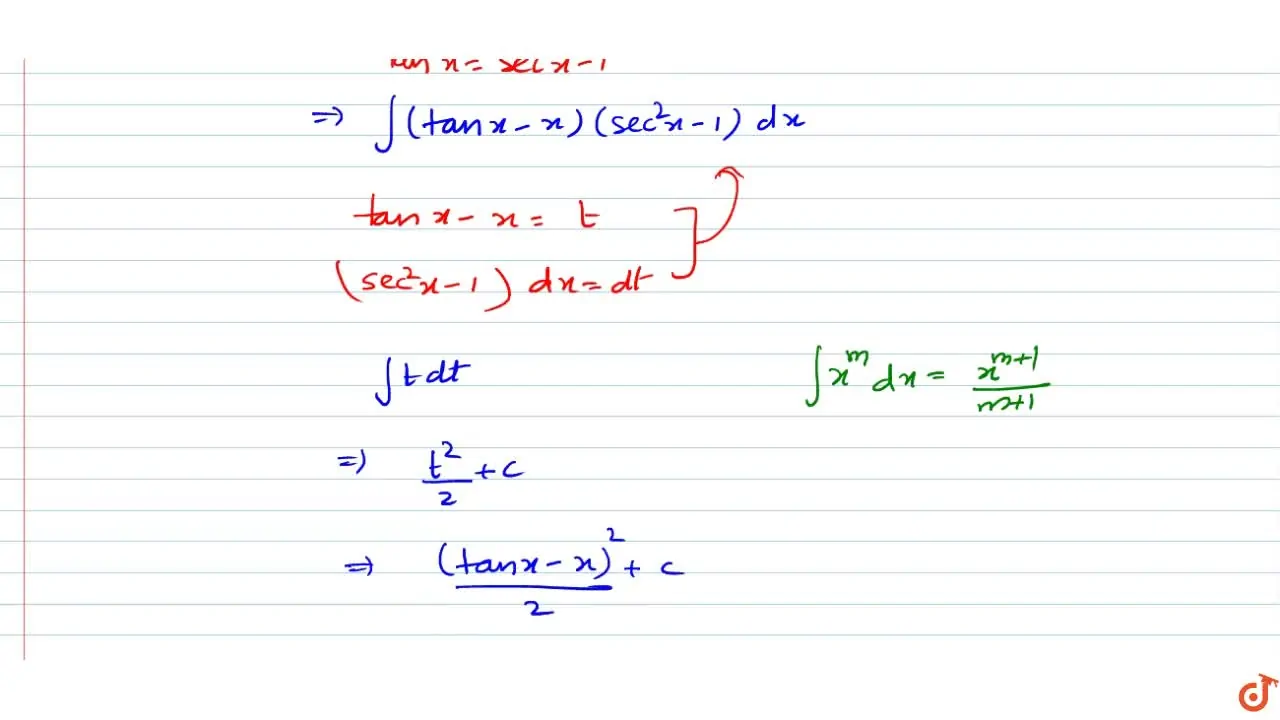 tan x = sec x - 1
⇒ ∫ (tan x - x) (sec²x - 1) dx
tan x - x = t
(sec²x - 1) dx = dt
∫ t dt
∫ x^m dx = x^(m+1)/(m+1)
⇒ t²/2 + c
⇒ (tan x - x)²/2 + c